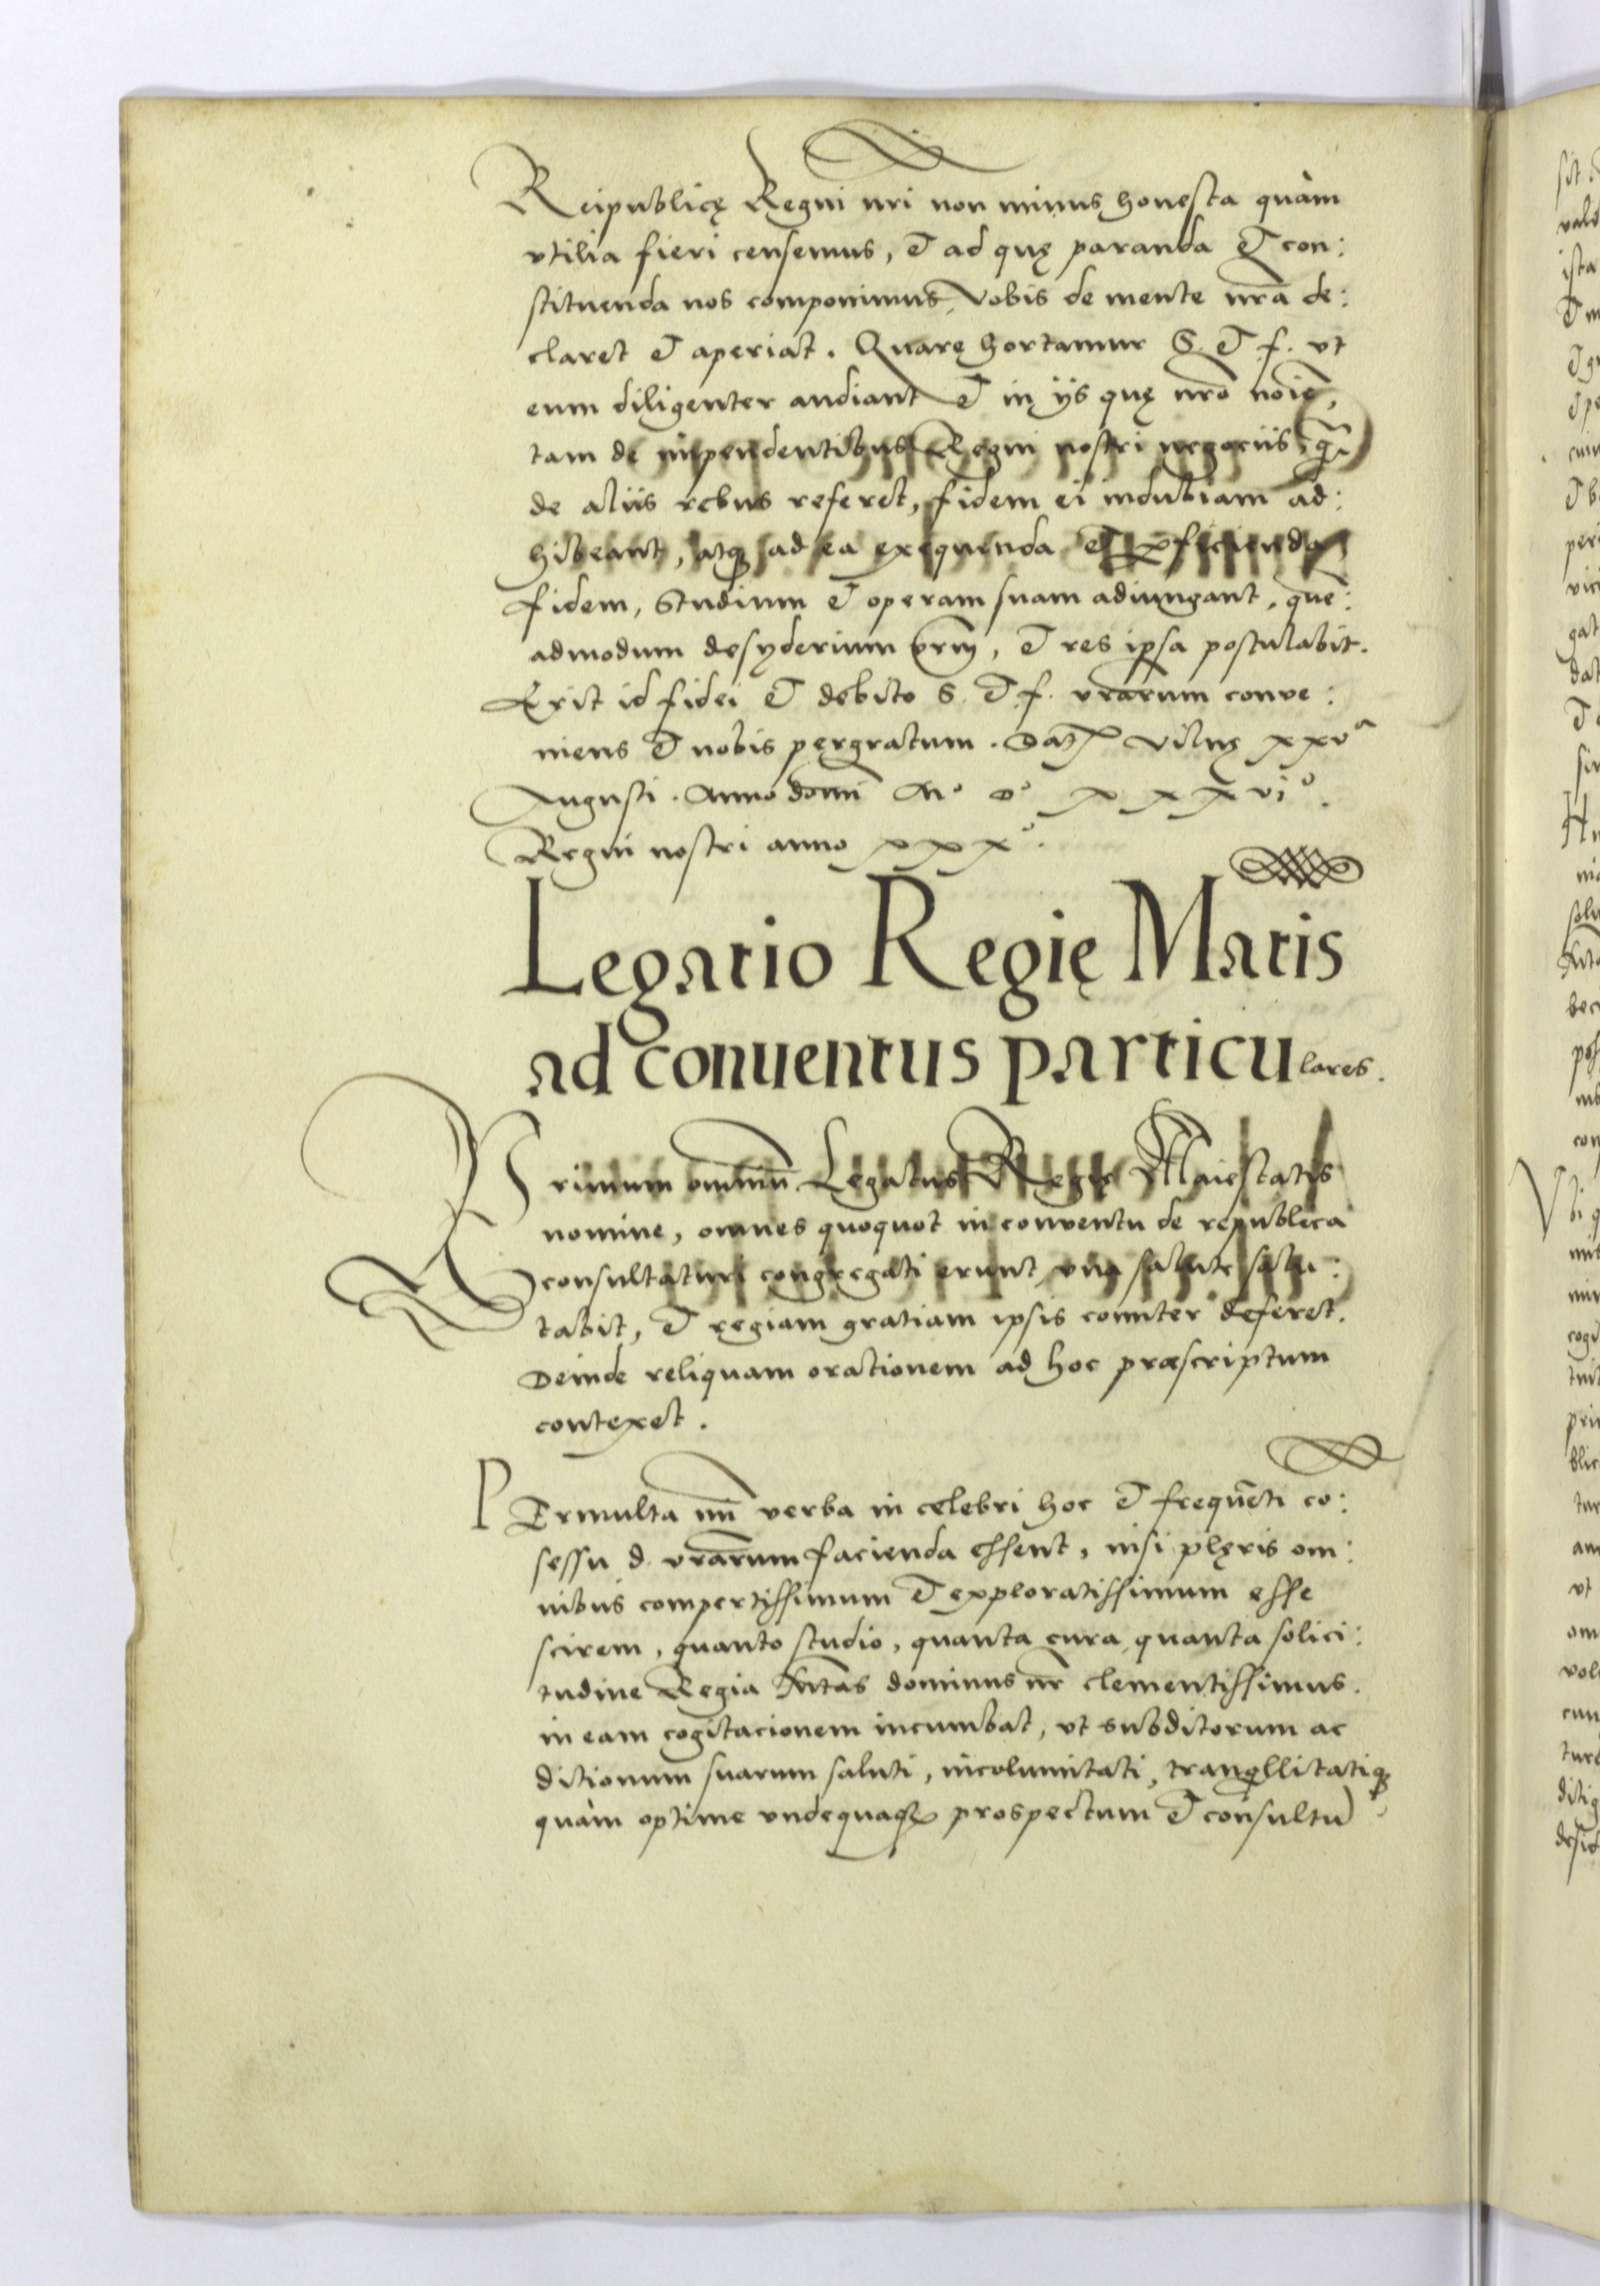 Reipublicę Regni nri non minus honesta quàm
vtilia fieri censemus, et ad quę paranda et con:
stituenda nos componimus, Vobis de mente nrã de:
claret et aperiat. Quarę hortamur S. et f. vt
eum diligenter audiant et in ijs quę nrõ noiẽ,
tam de impendentibus Regni nostri negociis, q̃
de aliis rebus referet, fidem ei indubiam ad:
hibeant, atq ad ea exequenda et pficienda
fidem, Studium et operam suam adiungant, quẽ:
admodum desyderium vrm, et res ipsa postulabit.
Erit id fidei et debito S. et f. vrarum conve:
niens et nobis pęrgratum. Dat Vilnę xxvª
Augusti. Anno domi Mº Dº xxxviº.
Regni nostri anno xxxº.
Legatio Regię Matis
ad conuentus particulares.
Primum omniũ Legatus Regię Maiestatis
nomine, omnes quoquot in conventu de republica
consultaturi congregati erunt vna salute salu:
tabit, et regiam gratiam ipsis comiter deferet.
Deinde reliquam orationem ad hoc præscriptum
contexet.
PErmulta mi verba in celebri hoc et frequẽti co:
sessu d. vrarum facienda essent, nisi plęris om:
nibus compertissimum et exploratissimum esse
scirem, quanto studio, quanta cura, quanta solici:
tudine Regia Mtas dominus nr clementissimus.
in eam cogitacionem incumbat, vt subditorum ac
ditionum suarum saluti, incolumitati, tranqllitatiq
quàm optime vndequaq prospectum et consultũ